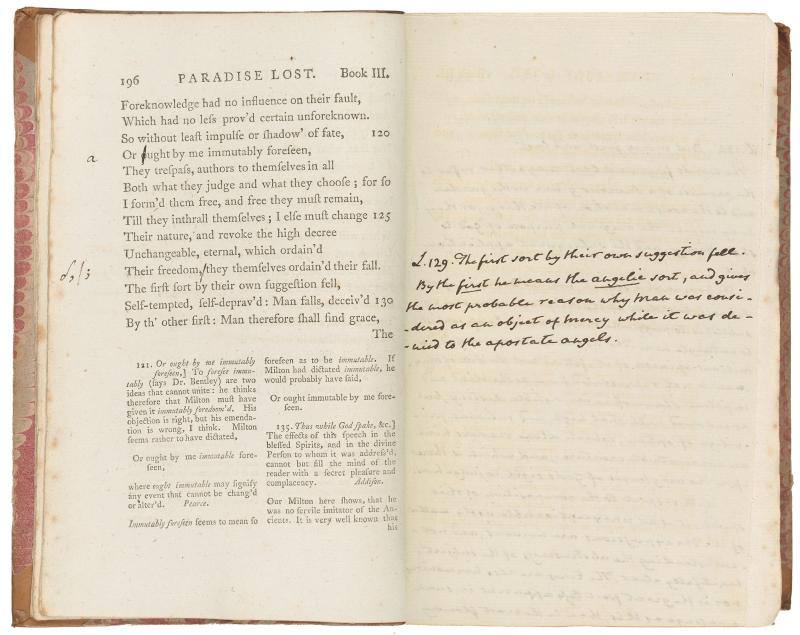 196 PARADISE LOST. Book III.
Foreknowledge had no influence on their fault,
Which had no leſs prov'd certain unforeknown.
So without leaſt impulſe or ſhadow' of fate, 120
a Or ought by me immutably foreſeen,
They treſpaſs, authors to themſelves in all
Both what they judge and what they chooſe; for ſo
I form'd them free, and free they muſt remain,
Till they inthrall themſelves; I elſe muſt change 125
Their nature, and revoke the high decree
Unchangeable, eternal, which ordain'd
Their freedom, they themſelves ordain'd their fall.
The firſt ſort by their own ſuggeſtion fell,
Self-tempted, ſelf-deprav'd: Man falls, deceiv'd 130
By th' other firſt: Man therefore ſhall find grace,
The
121. Or ought by me immutably
foreſeen,] To foreſee immu-
tably (ſays Dr. Bentley) are two
ideas that cannot unite: he thinks
therefore that Milton muſt have
given it immutably foredoom'd. His
objection is right, but his emenda-
tion is wrong, I think. Milton
ſeems rather to have dictated,
Or ought by me immutable fore-
ſeen,
where ought immutable may ſignify
any event that cannot be chang'd
or alter'd. Pearce.
Immutably foreſeen ſeems to mean ſo
foreſeen as to be immutable. If
Milton had dictated immutable, he
would probably have ſaid,
Or ought immutable by me fore-
ſeen.
135. Thus while God ſpake, &c.]
The effects of this ſpeech in the
bleſſed Spirits, and in the divine
Perſon to whom it was addreſs'd,
cannot but fill the mind of the
reader with a ſecret pleaſure and
complacency. Addiſon.
Our Milton here ſhows, that he
was no ſervile imitator of the An-
cients. It is very well known that
his
L. 129. The first sort by their own suggestion fell.
By the first he means the angelic sort, and gives
the most probable reason why man was consi-
-dered as an object of mercy while it was de-
-nied to the apostate angels.